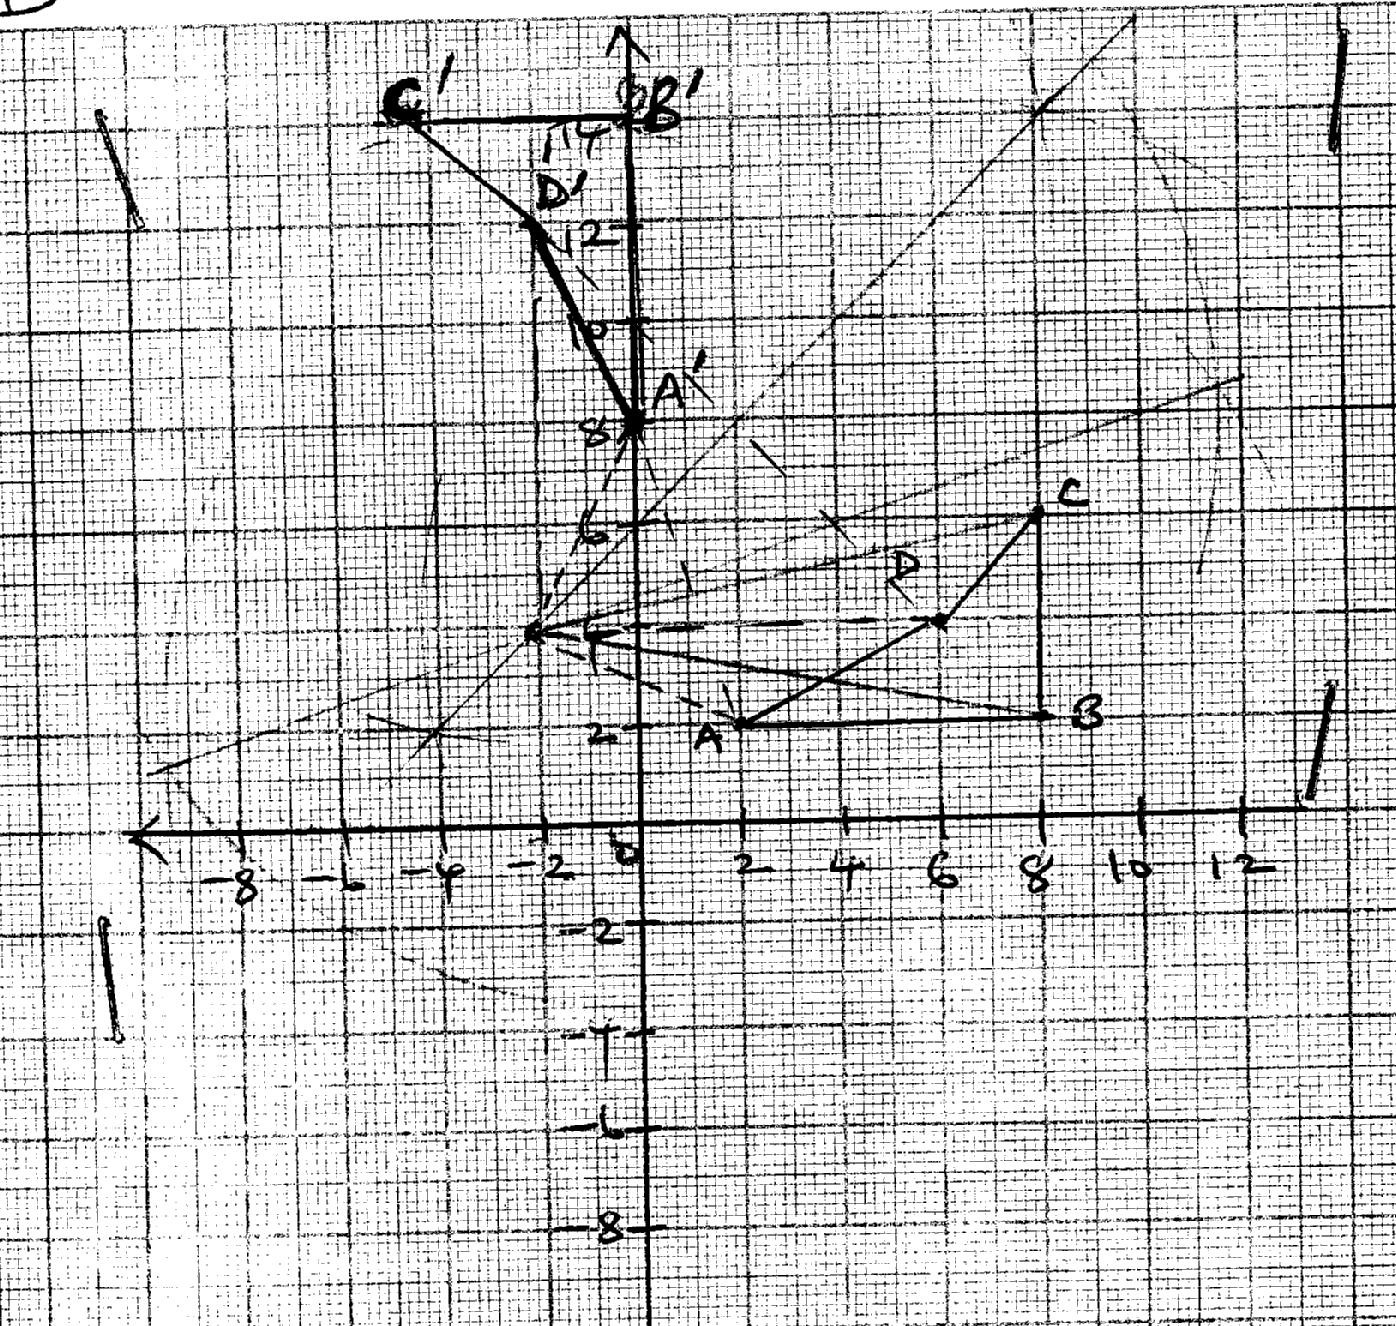 C' B'
14
D'
12
10
A'
8
C
6
D
2 A B
-8 -6 -4 -2 0 2 4 6 8 10 12
-2
-4
-6
-8